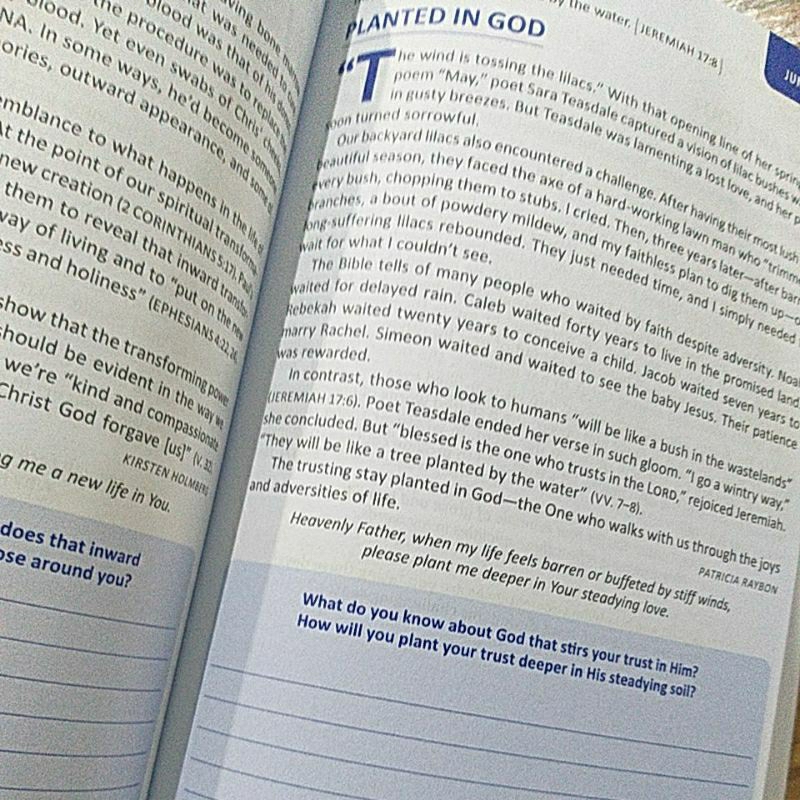 aving bone
at was needed to
blood was that of his
the procedure was to replace
blood. Yet even swabs of Chris' cheeks
NA. In some ways, he'd become someone
ories, outward appearance, and some of
emblance to what happens in the life of
At the point of our spiritual transforma
new creation (2 CORINTHIANS 5:17). Paul
them to reveal that inward transfor
way of living and to "put on the new
ess and holiness" (EPHESIANS 4:22, 24
show that the transforming power
should be evident in the way we
we're "kind and compassionate
Christ God forgave [us]" (V. 32)
KIRSTEN HOLMBERG
g me a new life in You.
does that inward
ose around you?
y the water. | JEREMIAH 17:8 |
JU
PLANTED IN GOD
"The wind is tossing the lilacs." With that opening line of her spring
poem "May," poet Sara Teasdale captured a vision of lilac bushes w
in gusty breezes. But Teasdale was lamenting a lost love, and her p
soon turned sorrowful.
Our backyard lilacs also encountered a challenge. After having their most lush
beautiful season, they faced the axe of a hard-working lawn man who "trimm
every bush, chopping them to stubs. I cried. Then, three years later—after barr
branches, a bout of powdery mildew, and my faithless plan to dig them up—o
long-suffering lilacs rebounded. They just needed time, and I simply needed
wait for what I couldn't see.
The Bible tells of many people who waited by faith despite adversity. Noah
waited for delayed rain. Caleb waited forty years to live in the promised land
Rebekah waited twenty years to conceive a child. Jacob waited seven years to
marry Rachel. Simeon waited and waited to see the baby Jesus. Their patience
was rewarded.
In contrast, those who look to humans "will be like a bush in the wastelands"
(JEREMIAH 17:6). Poet Teasdale ended her verse in such gloom. "I go a wintry way,"
she concluded. But "blessed is the one who trusts in the LORD," rejoiced Jeremiah.
"They will be like a tree planted by the water" (VV. 7–8).
The trusting stay planted in God—the One who walks with us through the joys
and adversities of life.
PATRICIA RAYBON
Heavenly Father, when my life feels barren or buffeted by stiff winds,
please plant me deeper in Your steadying love.
What do you know about God that stirs your trust in Him?
How will you plant your trust deeper in His steadying soil?